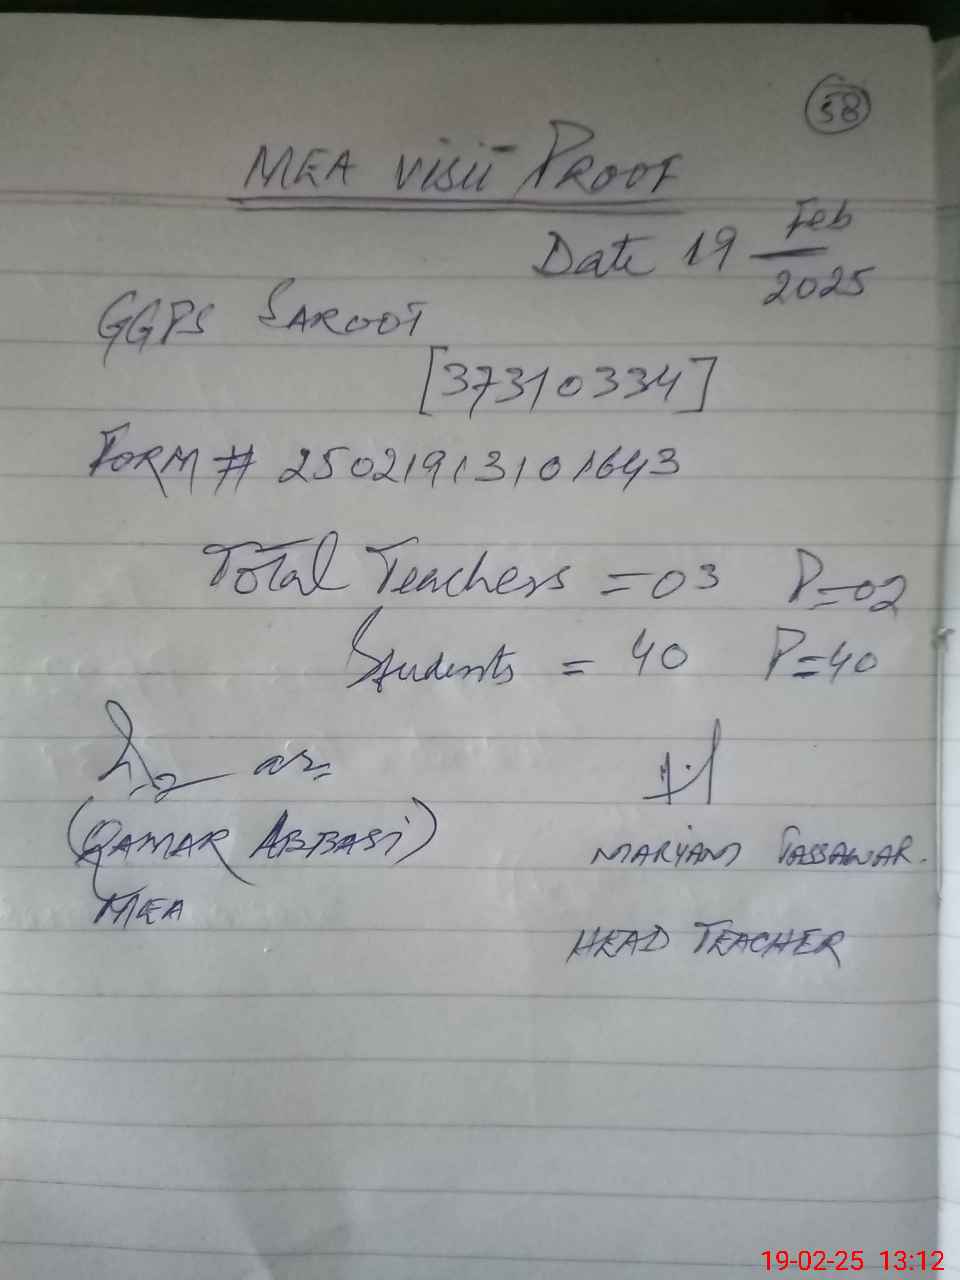 58
MEA Visit Proof
Date 19 Feb
2025
GGPS SAROOT
[37310334]
FORM # 25021913101643
Total Teachers = 03 P=02
Students = 40 P=40
(QAMAR ABBASI)
MEA
MARYAM TASSAWAR.
HEAD TEACHER
19-02-25 13:12